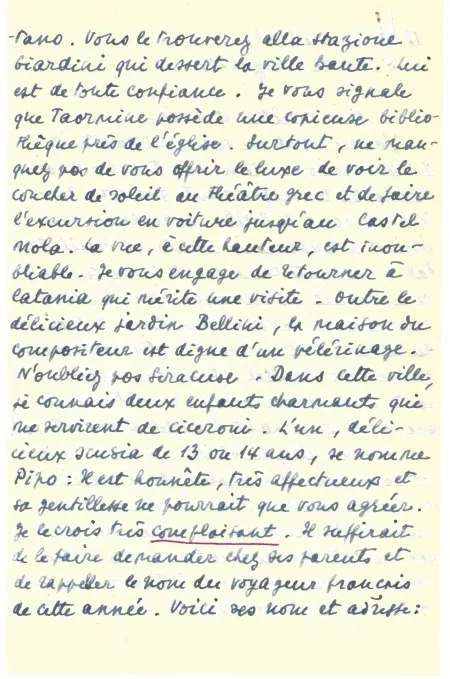 -tano. Vous le trouverez alla stazione
Giardini qui dessert la ville haute. Lui
est de toute confiance. Je vous signale
que Taormine possède une copieuse biblio-
thèque près de l'église. Surtout, ne man-
quez pas de vous offrir le luxe de voir le
coucher de soleil au théâtre grec et de faire
l'excursion en voiture jusqu'au Castel
Mola. La vue, à cette hauteur, est inou-
bliable. Je vous engage de retourner à
Catania qui mérite une visite. Outre le
délicieux jardin Bellini, la maison du
compositeur est digne d'un pélérinage.
N'oubliez pas Siracuse. Dans cette ville,
je connais deux enfants charmants qui
me servirent de ciceroni. L'un, déli-
cieux de 13 ou 14 ans, se nomme
Pipo : Il est honnête, très affectueux et
sa gentillesse ne pourrait que vous agréer.
Je le crois très complaisant. Il suffirait
de le faire demander chez ses parents et
de rappeller le nom du voyageur français
de cette année. Voici ses nom et adresse :